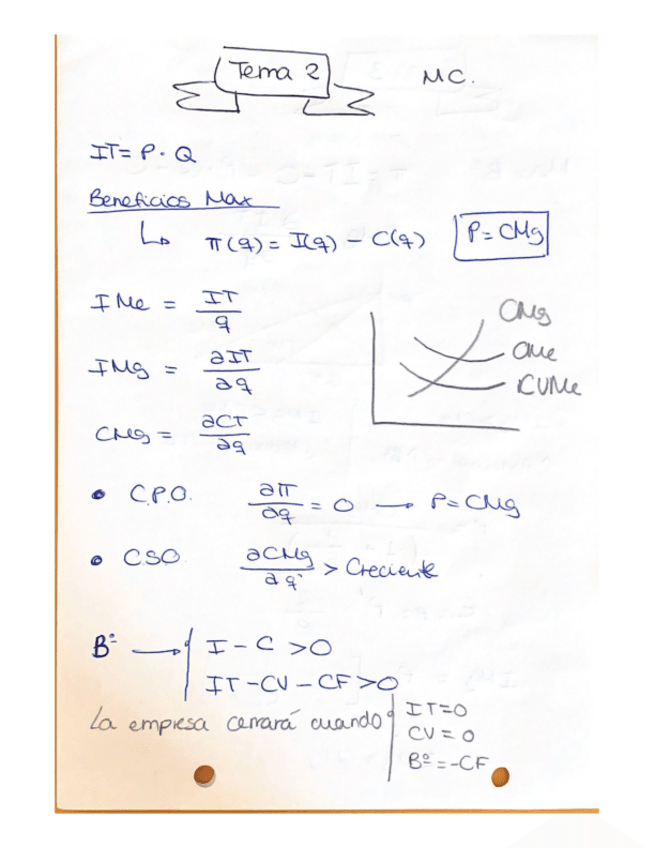 Tema 2
MC.
IT = P · Q
Beneficios Max
↳ π(q) = I(q) - C(q)
P = CMg
IMe = IT/q
IMg = ∂IT/∂q
CMg = ∂CT/∂q
CMg
CMe
CVMe
• C.P.O. ∂π/∂q = 0 → P = CMg
• CSO ∂CMg/∂q > Creciente
Bº → I - C > 0
IT - CV - CF > 0
La empresa cerrará cuando
IT = 0
CV = 0
Bº = -CF